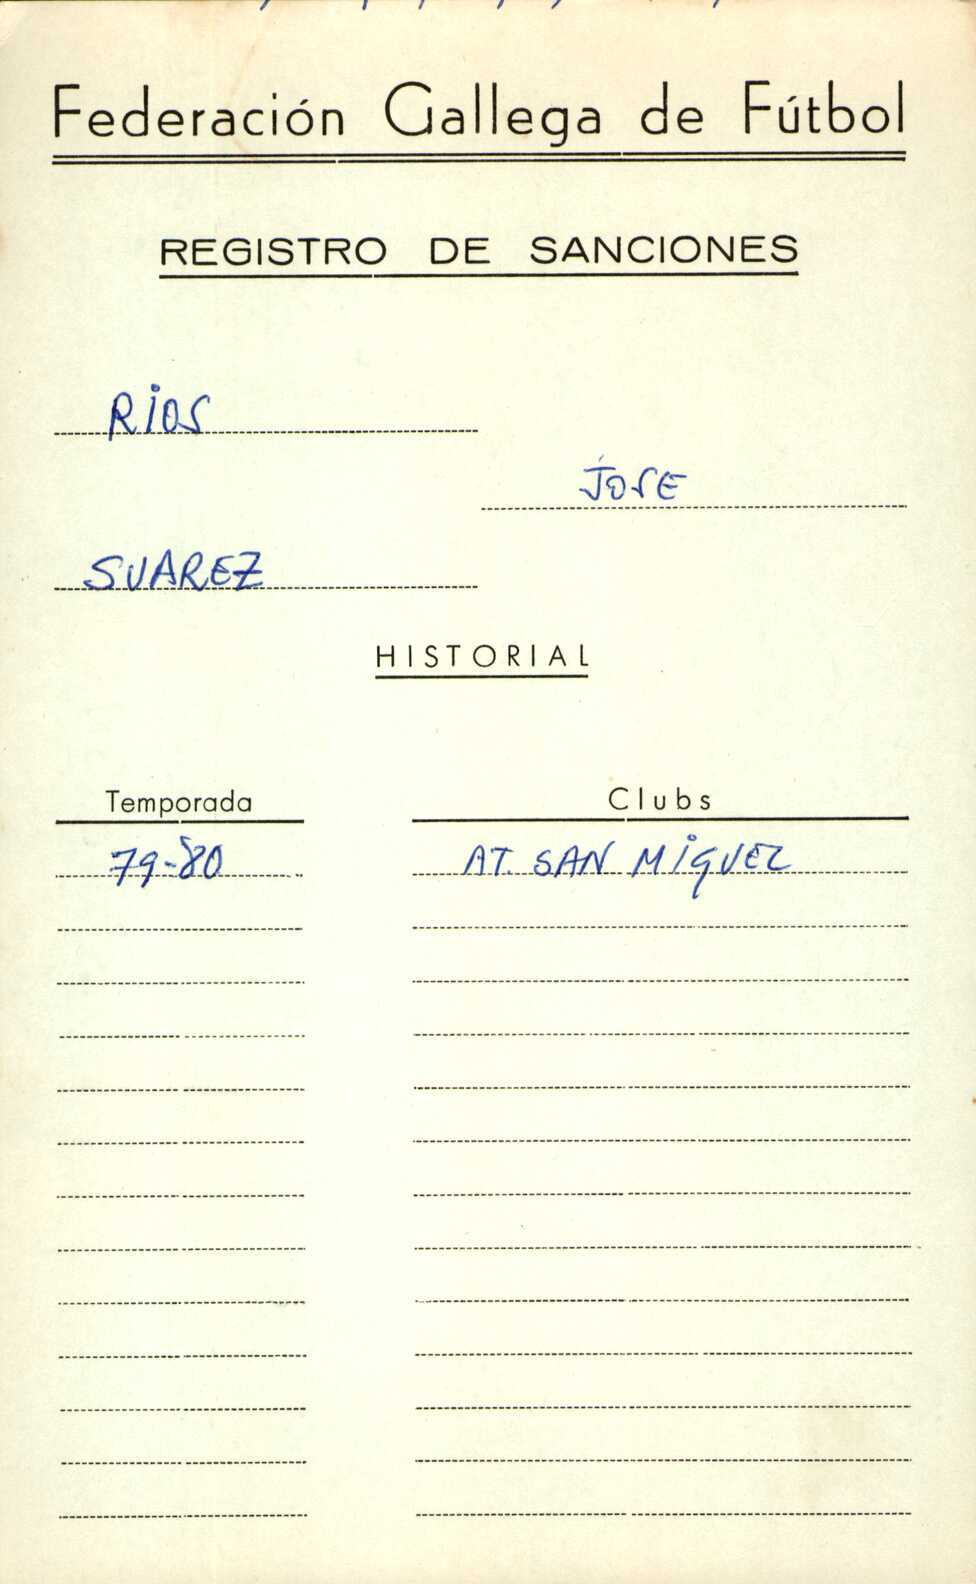 Federación Gallega de Fútbol
REGISTRO DE SANCIONES
RiOS
JOSE
SUAREZ
HISTORIAL
Temporada Clubs
79-80 AT. SAN MiGUEL